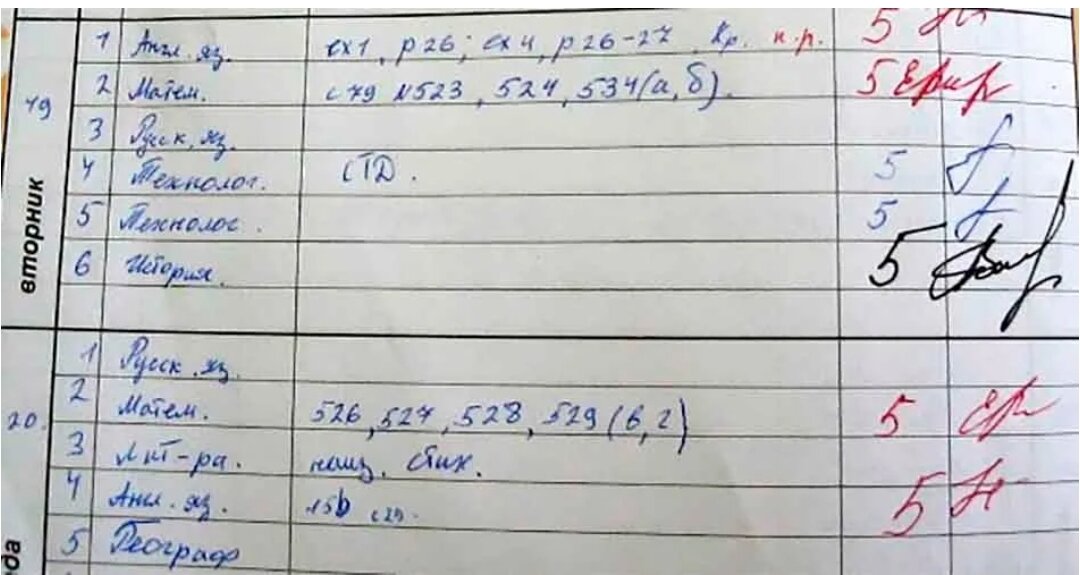 19
вторник
1 Англ. яз. ex 1, p 26; ex 4, p 26-27 Кр. н.р. 5
2 Матем. с 79 №523, 524, 534(а, б). 5
3 Русск. яз.
4 Технолог. СТД. 5
5 Технолог. 5
6 История. 5
20.
1 Русск. яз.
2 Матем. 526, 527, 528, 529 (в, г) 5
3 Лит-ра. наиз. стих.
4 Англ. яз. 15b с29. 5
5 Географ
да